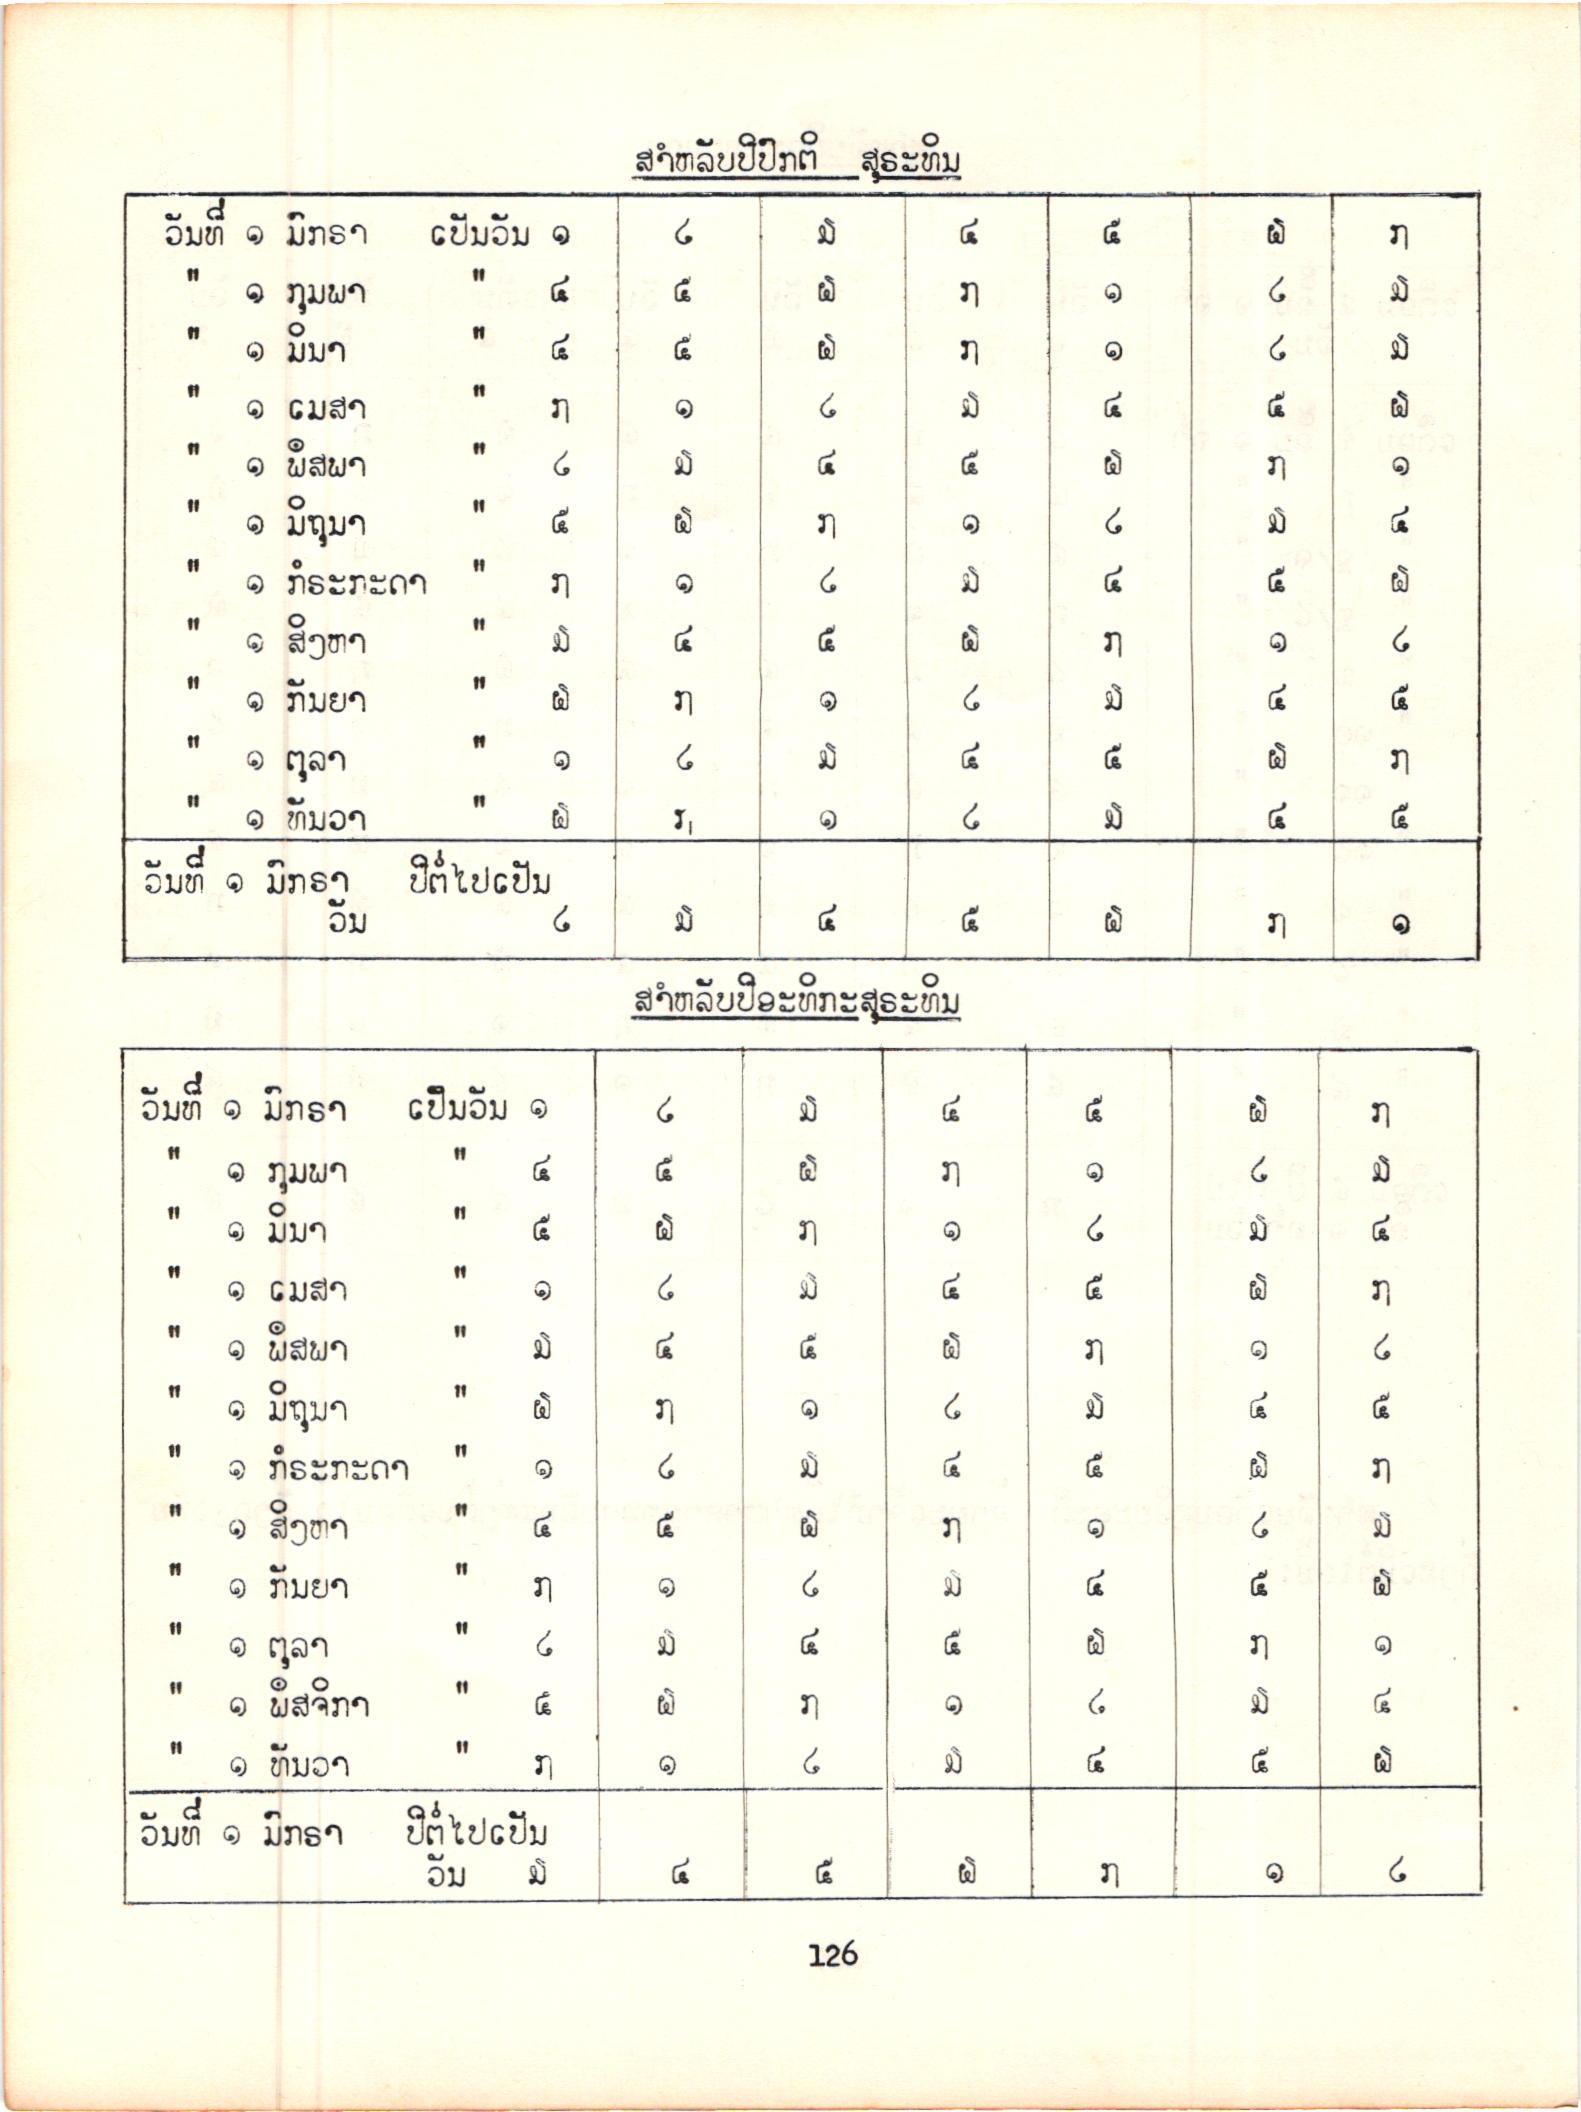 ສຳຫລັບປີປົກຕິ ສຸຣະທິນ
ວັນທີ່ ໑ ມົກຣາ ເປັນວັນ ໑ ໒ ໓ ໔ ໕ ໖ ໗
" ໑ ກຸມພາ " ໔ ໕ ໖ ໗ ໑ ໒ ໓
" ໑ ມີນາ " ໔ ໕ ໖ ໗ ໑ ໒ ໓
" ໑ ເມສາ " ໗ ໑ ໒ ໓ ໔ ໕ ໖
" ໑ ພຶສພາ " ໒ ໓ ໔ ໕ ໖ ໗ ໑
" ໑ ມິຖຸນາ " ໕ ໖ ໗ ໑ ໒ ໓ ໔
" ໑ ກໍຣະກະດາ " ໗ ໑ ໒ ໓ ໔ ໕ ໖
" ໑ ສິງຫາ " ໓ ໔ ໕ ໖ ໗ ໑ ໒
" ໑ ກັນຍາ " ໖ ໗ ໑ ໒ ໓ ໔ ໕
" ໑ ຕຸລາ " ໑ ໒ ໓ ໔ ໕ ໖ ໗
" ໑ ທັນວາ " ໖ ໗ ໑ ໒ ໓ ໔ ໕
ວັນທີ່ ໑ ມົກຣາ ປີຕໍ່ໄປເປັນ
ວັນ ໒ ໓ ໔ ໕ ໖ ໗ ໑
ສຳຫລັບປີອະທິກະສຸຣະທິນ
ວັນທີ່ ໑ ມົກຣາ ເປັນວັນ ໑ ໒ ໓ ໔ ໕ ໖ ໗
" ໑ ກຸມພາ " ໔ ໕ ໖ ໗ ໑ ໒ ໓
" ໑ ມີນາ " ໕ ໖ ໗ ໑ ໒ ໓ ໔
" ໑ ເມສາ " ໑ ໒ ໓ ໔ ໕ ໖ ໗
" ໑ ພຶສພາ " ໓ ໔ ໕ ໖ ໗ ໑ ໒
" ໑ ມິຖຸນາ " ໖ ໗ ໑ ໒ ໓ ໔ ໕
" ໑ ກໍຣະກະດາ " ໑ ໒ ໓ ໔ ໕ ໖ ໗
" ໑ ສິງຫາ " ໔ ໕ ໖ ໗ ໑ ໒ ໓
" ໑ ກັນຍາ " ໗ ໑ ໒ ໓ ໔ ໕ ໖
" ໑ ຕຸລາ " ໒ ໓ ໔ ໕ ໖ ໗ ໑
" ໑ ພຶສຈິກາ " ໕ ໖ ໗ ໑ ໒ ໓ ໔
" ໑ ທັນວາ " ໗ ໑ ໒ ໓ ໔ ໕ ໖
ວັນທີ່ ໑ ມົກຣາ ປີຕໍ່ໄປເປັນ
ວັນ ໓ ໔ ໕ ໖ ໗ ໑ ໒
126